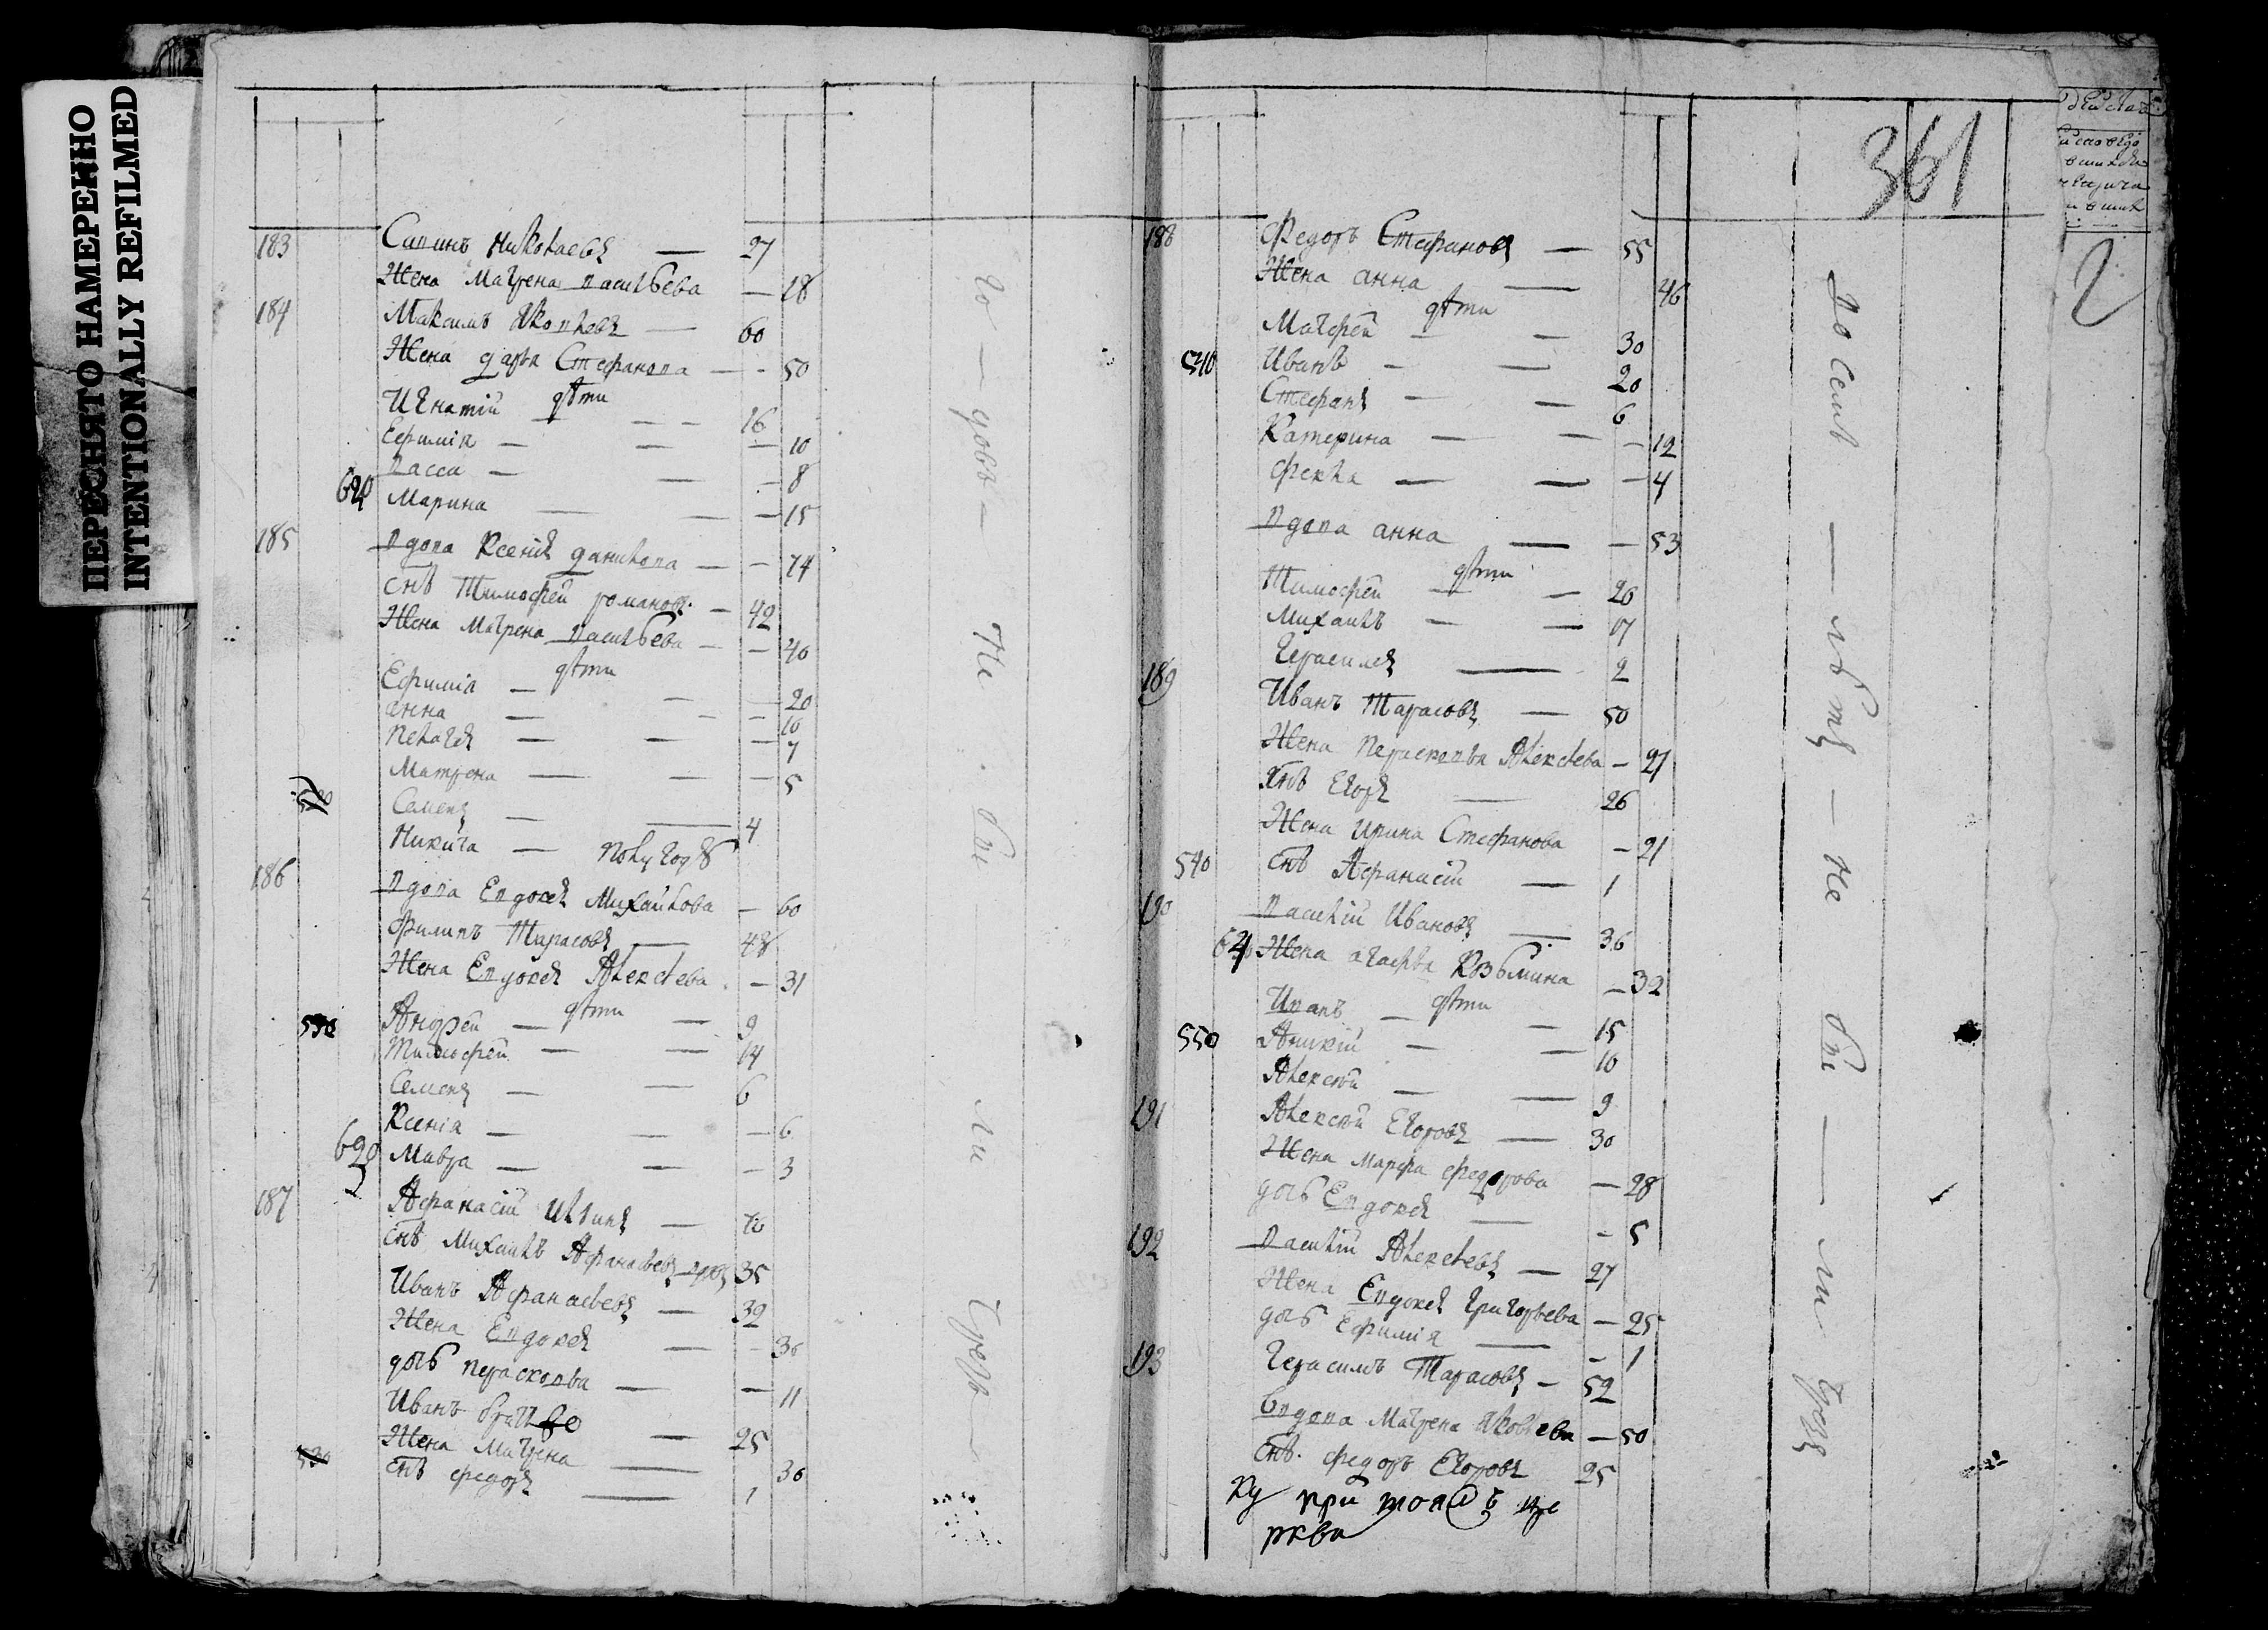 ПЕРЕСНЯТО НАМЕРЕННО
INTENTIONALLY REFILMED
183 Николаевъ — 27
Жена Матрена Васильева — 18
184 Максимъ Яковлевъ — 60
Жена Дарья Стефанова — 50
дѣти
Игнатій — 16
Ефимія — 10
Васса — 8
Марина — 15
185 Вдова Ксенія Данилова — 74
снъ Тимофей Романовъ — 42
Жена Матрена Васильева — 40
дѣти
Ефимія — 20
Анна — 10
Пелагея — 7
Матрена — 5
Семенъ — 4
Никита — полугодъ
186 Вдова Евдокея Михайлова — 60
Филипъ Тарасовъ — 48
Жена Евдокея Алексѣева — 31
дѣти
Андрей — 9
Тимофей — 14
Семенъ — 6
Ксенія — 6
Мавра — 3
187 Афанасій Ильинъ — 70
снъ Михаилъ Афанасьевъ 35
Иванъ Афанасьевъ — 32
Жена Евдокея — 36
дочь Перасковья — 11
Иванъ братъ — 25
Жена Матрена — 30
снъ Федоръ — 1
361
188 Федоръ Стефановъ — 55
Жена Анна — 46
дѣти
Матфей — 30
540 Иванъ — 20
Стефанъ — 6
Катерина — 12
Фекла — 4
Вдова Анна — 53
дѣти
Тимофей — 20
Михаилъ — 17
Герасимъ — 2
189 Иванъ Тарасовъ — 50
Жена Перасковья Алексѣева — 27
снъ Егоръ — 26
Жена Ирина Стефанова — 21
540 снъ Афанасій — 1
190 Василій Ивановъ — 36
Жена Агафья Козьмина — 32
дѣти
Иванъ — 15
550 Аникій — 10
Алексѣй — 9
191 Алексѣй Егоровъ — 30
Жена Марфа Федорова — 28
дочь Евдокея — 5
192 Василій Алексѣевъ — 27
Жена Евдокея Григорьева — 25
дочь Ефимія — 1
193 Герасимъ Тарасовъ — 52
Вдова Матрена Яковлева — 50
снъ Федоръ Егоровъ 25
при той це
ркви